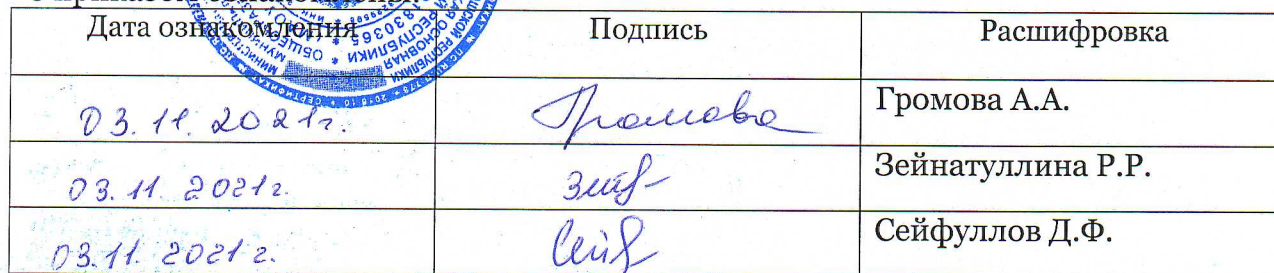 Дата ознакомления Подпись Расшифровка
03.11.2021г. Громова Громова А.А.
03.11.2021г. Зейнатуллина Р.Р.
03.11.2021г. Сейф Сейфуллов Д.Ф.